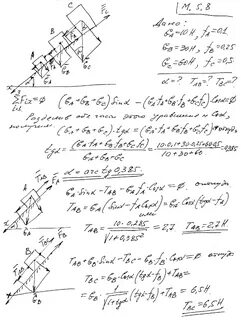 M, S, B
Дано:
G_A = 10 H, f_A = 0.1
G_B = 30 H, f_B = 0.25
G_C = 60 H, f_C = 0.5
α = ? T_AB = ? T_BC = ?
A
B
C
ΣF_ix = 0 (G_A + G_B + G_C) Sinα − (G_A f_A + G_B f_B + G_C f_C) Cosα = 0
Разделив обе части этого уравнения на Cosα,
получим
(G_A + G_B + G_C) · tgα = (G_A f_A + G_B f_B + G_C f_C) откуда
tgα = (G_A f_A + G_B f_B + G_C f_C) / (G_A + G_B + G_C) = (10·0.1 + 30·0.25 + 60·0.5) / (10 + 30 + 60) = 0.385
α = arc tg 0,385
G_A Sinα − T_AB − G_A f_A Cosα = 0 откуда
T_AB = G_A (Sinα − f_A Cosα) = G_A Cosα (tgα − f_A)
или
T_AB = 10 · 0.285 / √(1 + 0.385²) = 2,7 T_AB = 2,7 H
T_AB + G_B Sinα − T_BC − G_B f_B Cosα = 0 откуда
T_BC = G_B · Cosα (tgα − f_B) + T_AB =
= G_B · 1/√(1 + tg²α) (tgα − f_B) + T_AB = 6,5 H
T_BC = 6,5 H